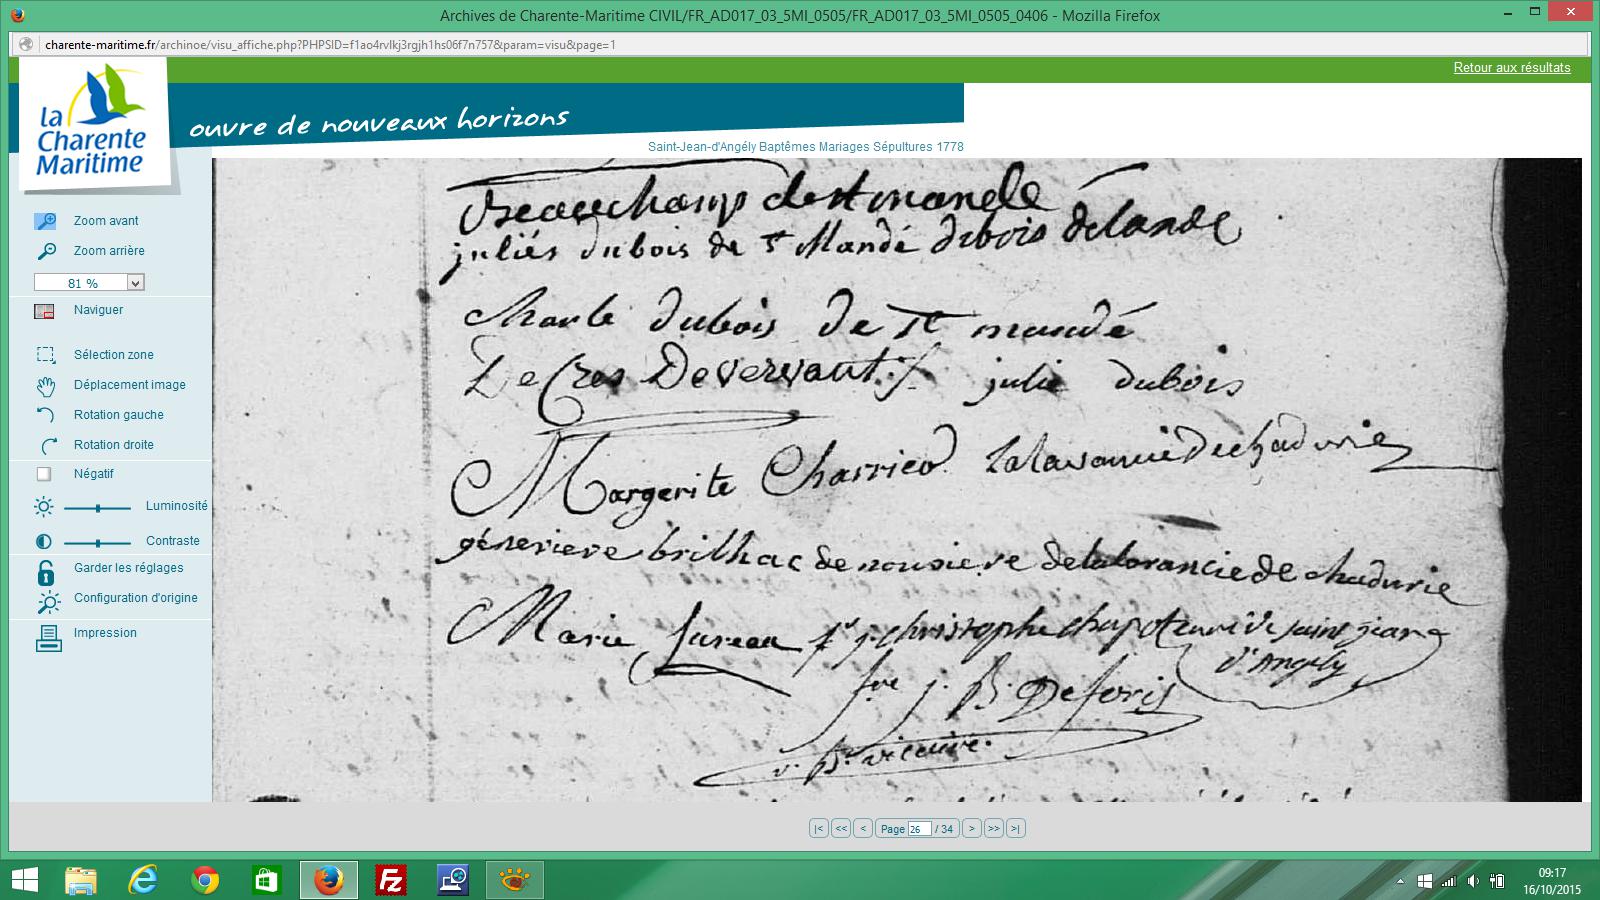 Archives de Charente-Maritime CIVIL/FR_AD017_03_5MI_0505/FR_AD017_03_5MI_0505_0406 - Mozilla Firefox
charente-maritime.fr/archinoe/visu_affiche.php?PHPSID=f1ao4rvlkj3rgjh1hs06f7n757&param=visu&page=1
Retour aux résultats
la Charente Maritime
ouvre de nouveaux horizons
Saint-Jean-d'Angély Baptêmes Mariages Sépultures 1778
Zoom avant
Zoom arrière
81 %
Naviguer
Sélection zone
Déplacement image
Rotation gauche
Rotation droite
Négatif
Luminosité
Contraste
Garder les réglages
Configuration d'origine
Impression
Beauchamp de st mandé
juliés dubois de st Mandé dubois delande
Charle dubois de st mandé
De Cres De vervant julie dubois
Margerite Charrieo De chadurie
génevieve brilhac de nousiere de la lorancie de chadurie
Marie Lureau fr j. christophe chapot curé de saint jean
d'Angely
fre j. B. Deforis
v. Bt. vicaire.
|< << < Page 26 / 34 > >> >|
09:17
16/10/2015